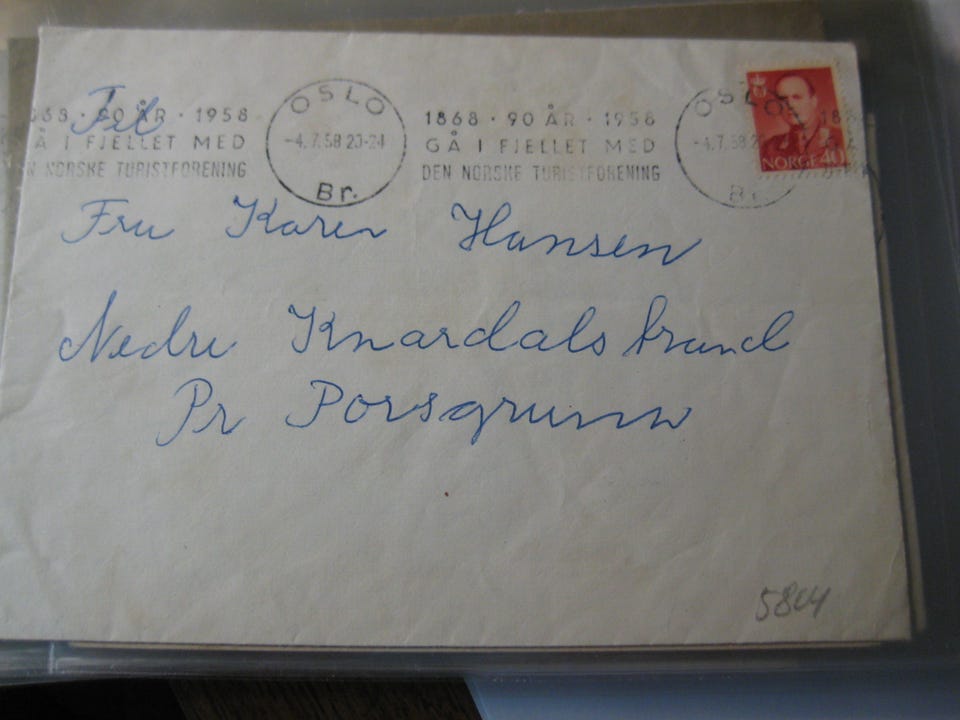 Til
868 · 90 ÅR · 1958
Å I FJELLET MED
N NORSKE TURISTFORENING
OSLO
-4.7.58 20-24
Br.
1868 · 90 ÅR · 1958
GÅ I FJELLET MED
DEN NORSKE TURISTFORENING
OSLO
-4.7.58 2
Br.
18
NORGE 40
Fru Karen Hansen
Nedre Knardalstrand
Pr Porsgrunn